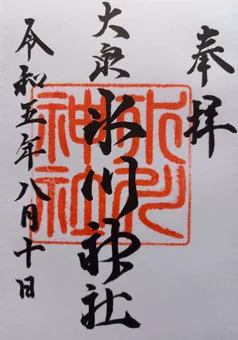 奉拝
大泉
氷川神社
令和五年八月十日